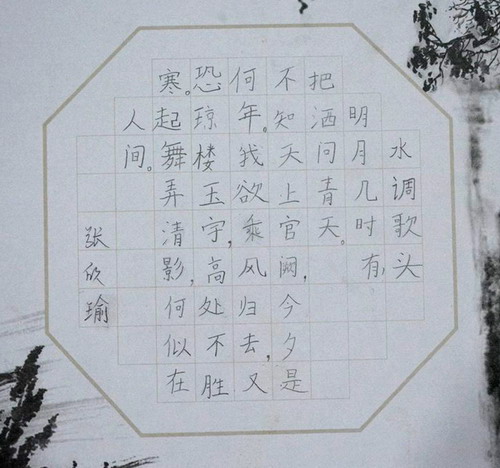 水调歌头
明月几时有,
把洒问青天。
不知天上官阙,今夕是
何年。我欲乘风归去,又
恐琼楼玉宇,高处不胜
寒。起舞弄清影,何似在
人间。
张欣瑜